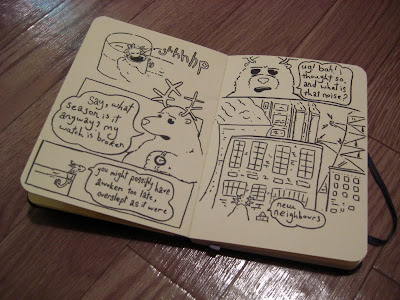 Say, what
season is it
anyway? my
watch is broken
you might possibly have
awoken too late,
overslept as it were
ug! bah! i
thought so.
and what is
that noise?
new
neighbours